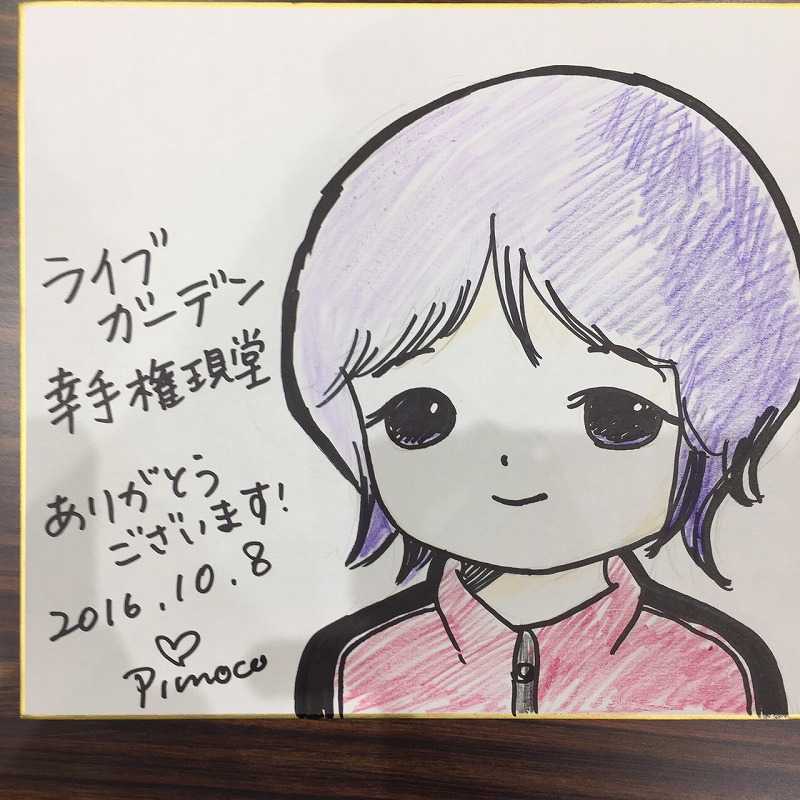 ライブ
ガーデン
幸手権現堂
ありがとう
ございます!
2016.10.8
♡
Pimoco